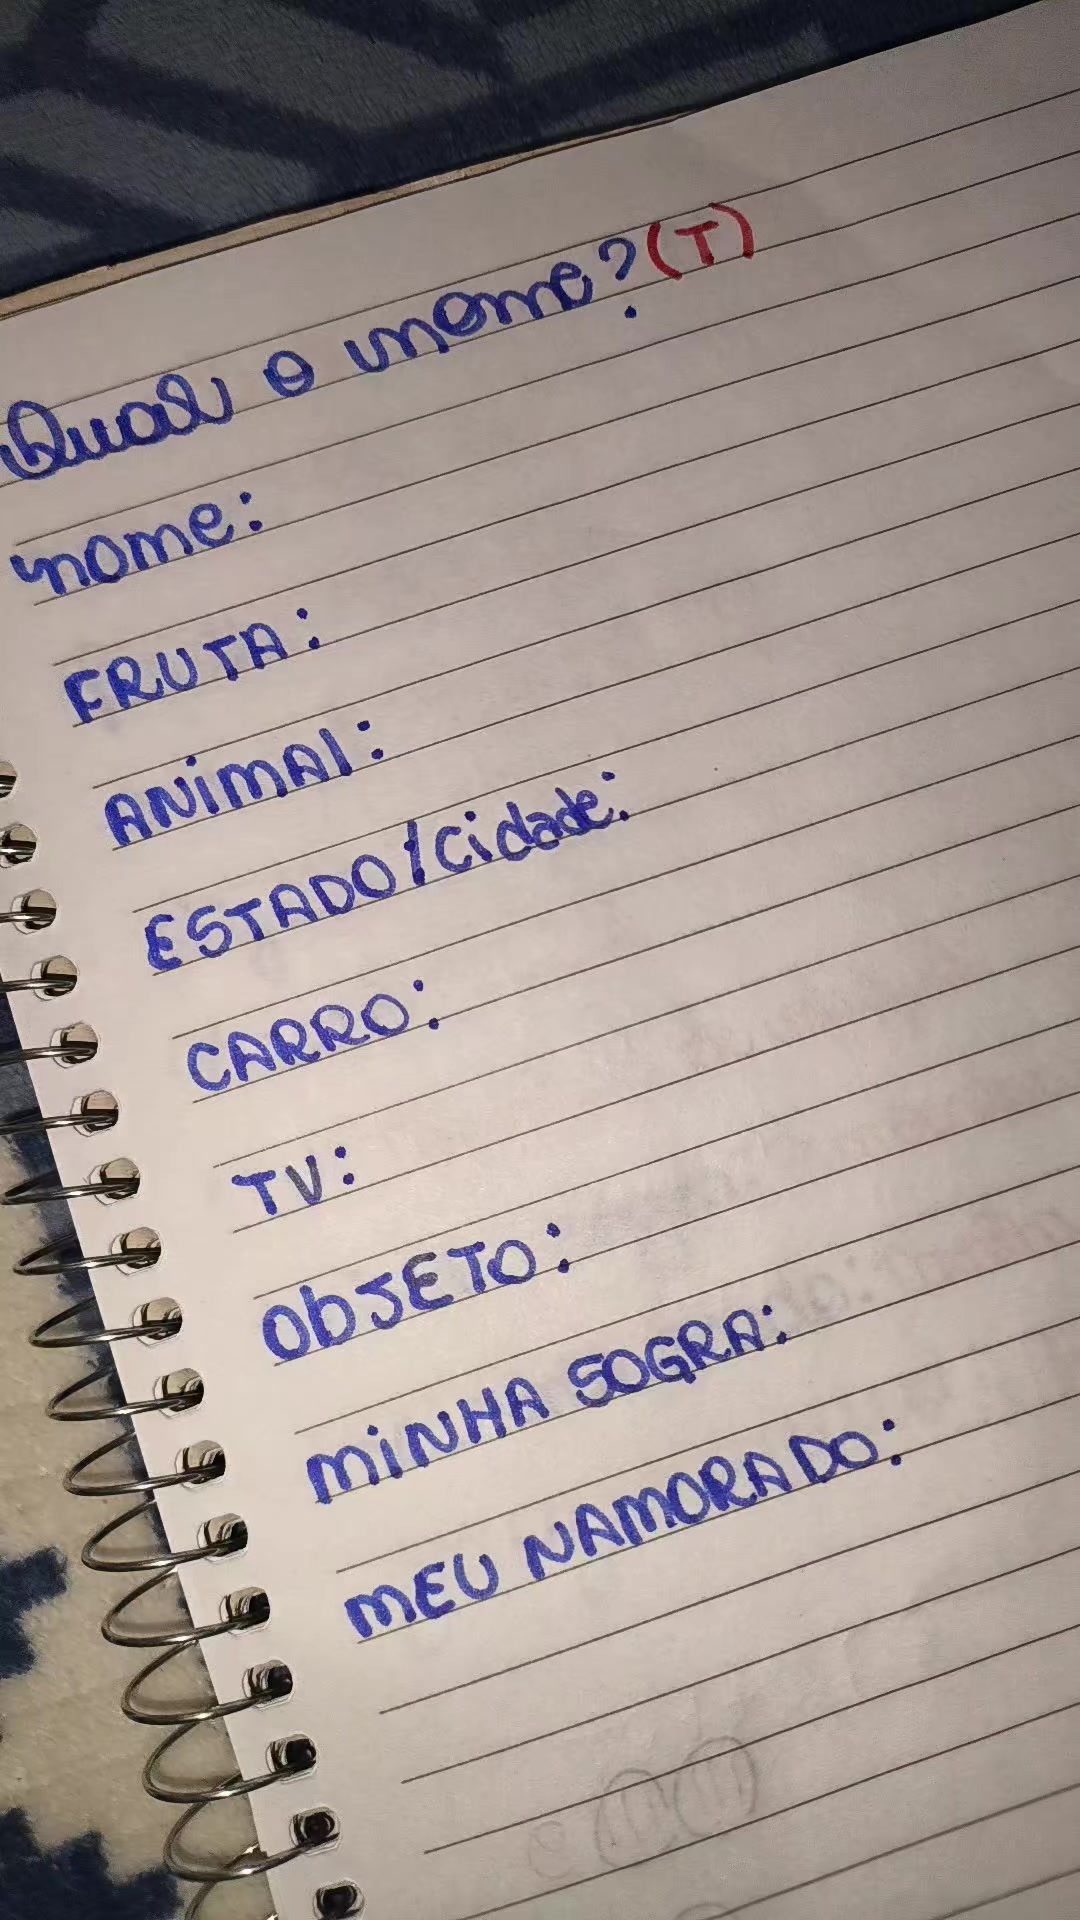 Qual o nome? (T)
nome:
FRUTA:
ANiMAl:
ESTADO/Cidade:
CARRO:
TV:
ObJETO:
MiNHA SOGRA:
MEU NAMORADO: